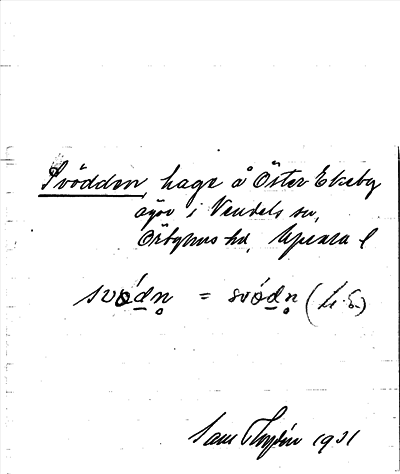 Svödden, hage å Öster Ekeby
ägor i Vendels sn,
Örbyhus hd, Uppsala l
svödn = svödn (
Sam 1931